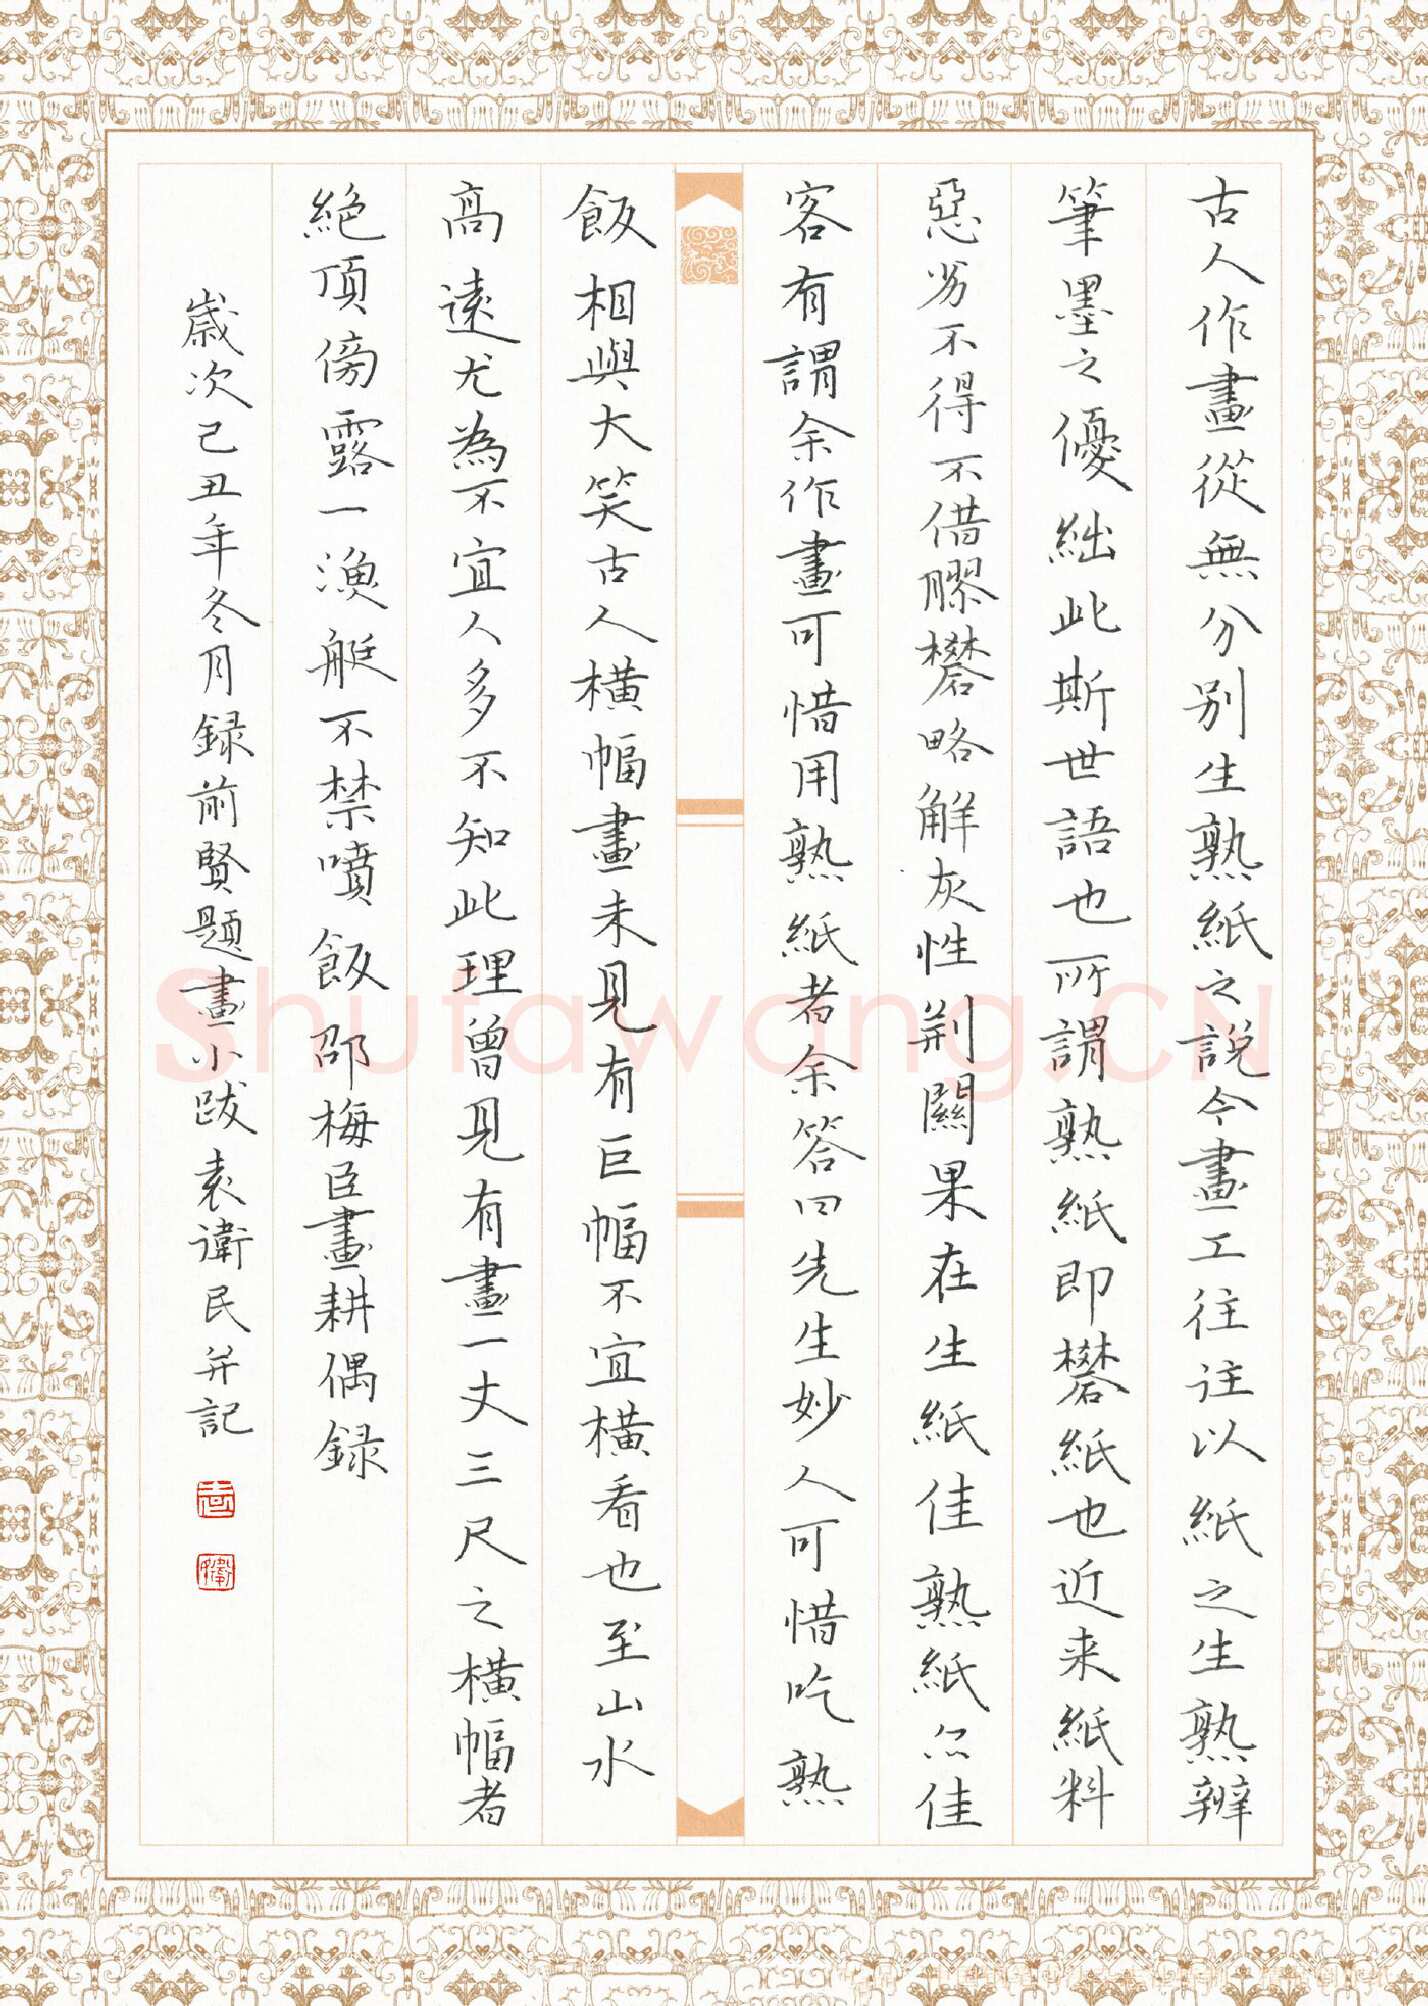 古人作畫從無分别生熟紙之説今畫工往往以紙之生熟辨
筆墨之優絀此斯世語也所謂熟紙即礬紙也近来紙料
惡劣不得不借膠礬略解灰性荆關果在生紙佳熟紙亦佳
客有謂余作畫可惜用熟紙者余答曰先生妙人可惜吃熟
飯相與大笑古人横幅畫未見有巨幅不宜横看也至山水
高遠尤為不宜人多不知此理曾見有畫一丈三尺之横幅者
絶頂傍露一漁艇不禁噴飯邵梅臣畫耕偶録
歲次己丑年冬月録前賢題畫小跋袁衛民并記
Shufawang.CN